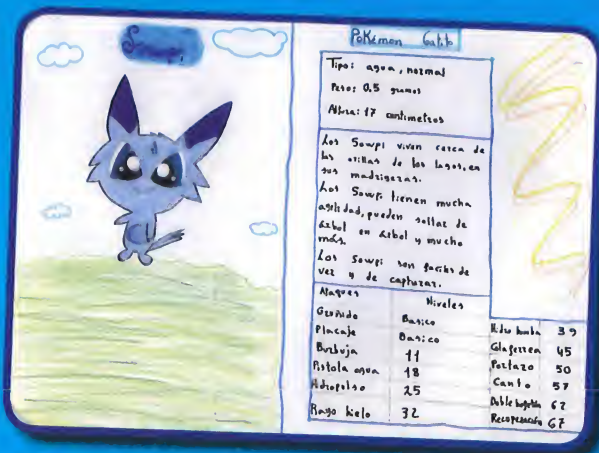 Sowpi
Pokémon Gatito
Tipo: agua, normal
Peso: 0.5 gramos
Altura: 17 centimetros
Los Sowpi viven cerca de
las orillas de los lagos, en
sus madrigeras.
Los Sowpi tienen mucha
agilidad, pueden saltar de
árbol en árbol y mucho
más.
Los Sowpi son faciles de
ver y de capturar.
Ataques Niveles
Gruñido Basico
Placaje Basico
Burbuja 11
Pistola agua 18
Hidropulso 25
Rayo hielo 32
Hidro bomba 39
45
Portazo 50
Canto 57
Doble bofetón 62
Recuperación 67